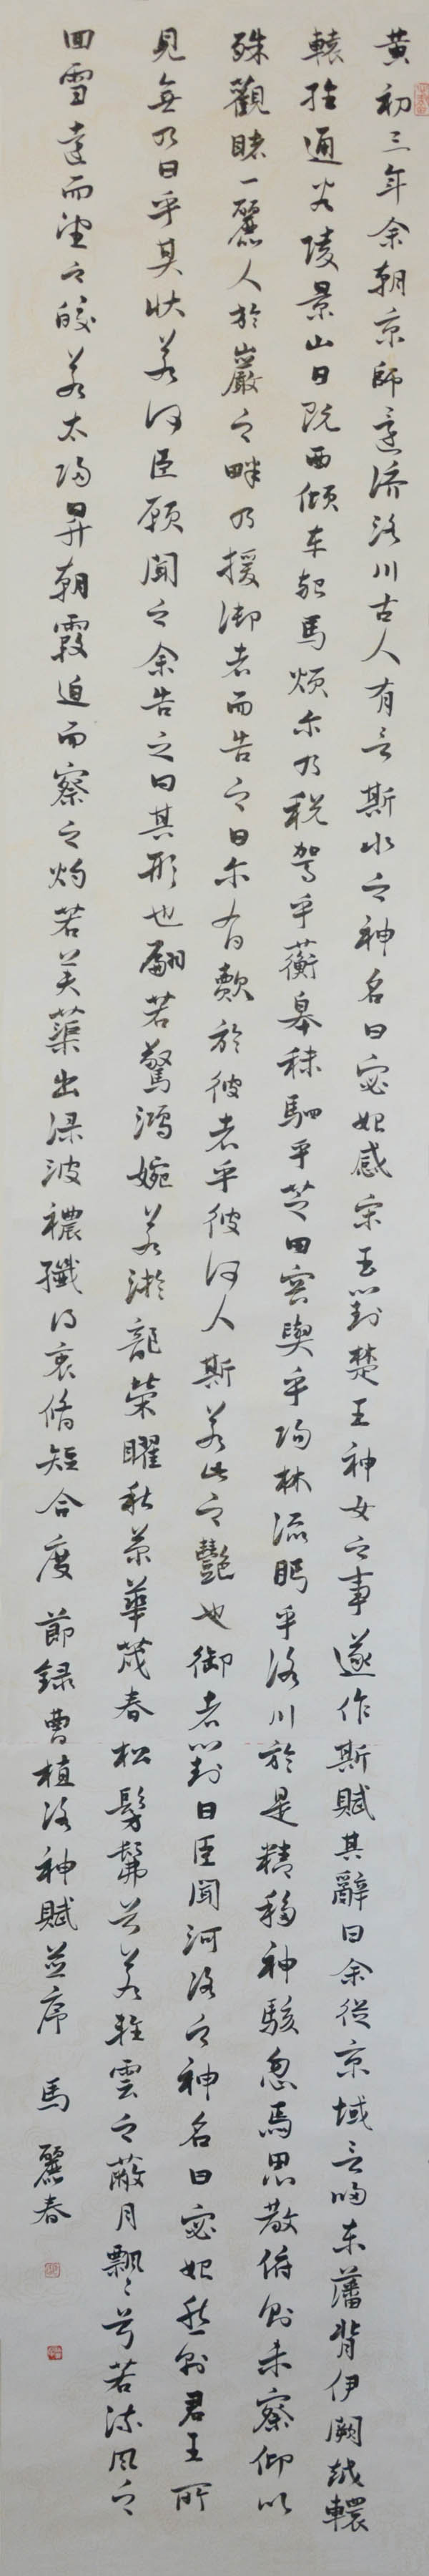 黄初三年余朝京師還濟洛川古人有言斯水之神名曰宓妃感宋玉對楚王神女之事遂作斯賦其辭曰余從京域言歸东藩背伊闕越轘
轅經通谷陵景山日既西傾车殆馬煩尔乃税驾乎蘅皋秣駟乎芝田容與乎陽林流眄乎洛川於是精移神駭忽焉思散俯則未察仰以
殊觀睹一麗人於巖之畔乃援御者而告之曰尔有覿於彼者乎彼何人斯若此之艷也御者對曰臣聞河洛之神名曰宓妃然則君王所
見無乃曰乎其狀若何臣願聞之余告之曰其形也翩若驚鴻婉若游龍榮曜秋菊華茂春松髣髴兮若輕雲之蔽月飄々兮若流風之
回雪遠而望之皎若太陽昇朝霞迫而察之灼若芙蕖出淥波穠纖得衷脩短合度 節録曹植洛神賦並序 馬麗春